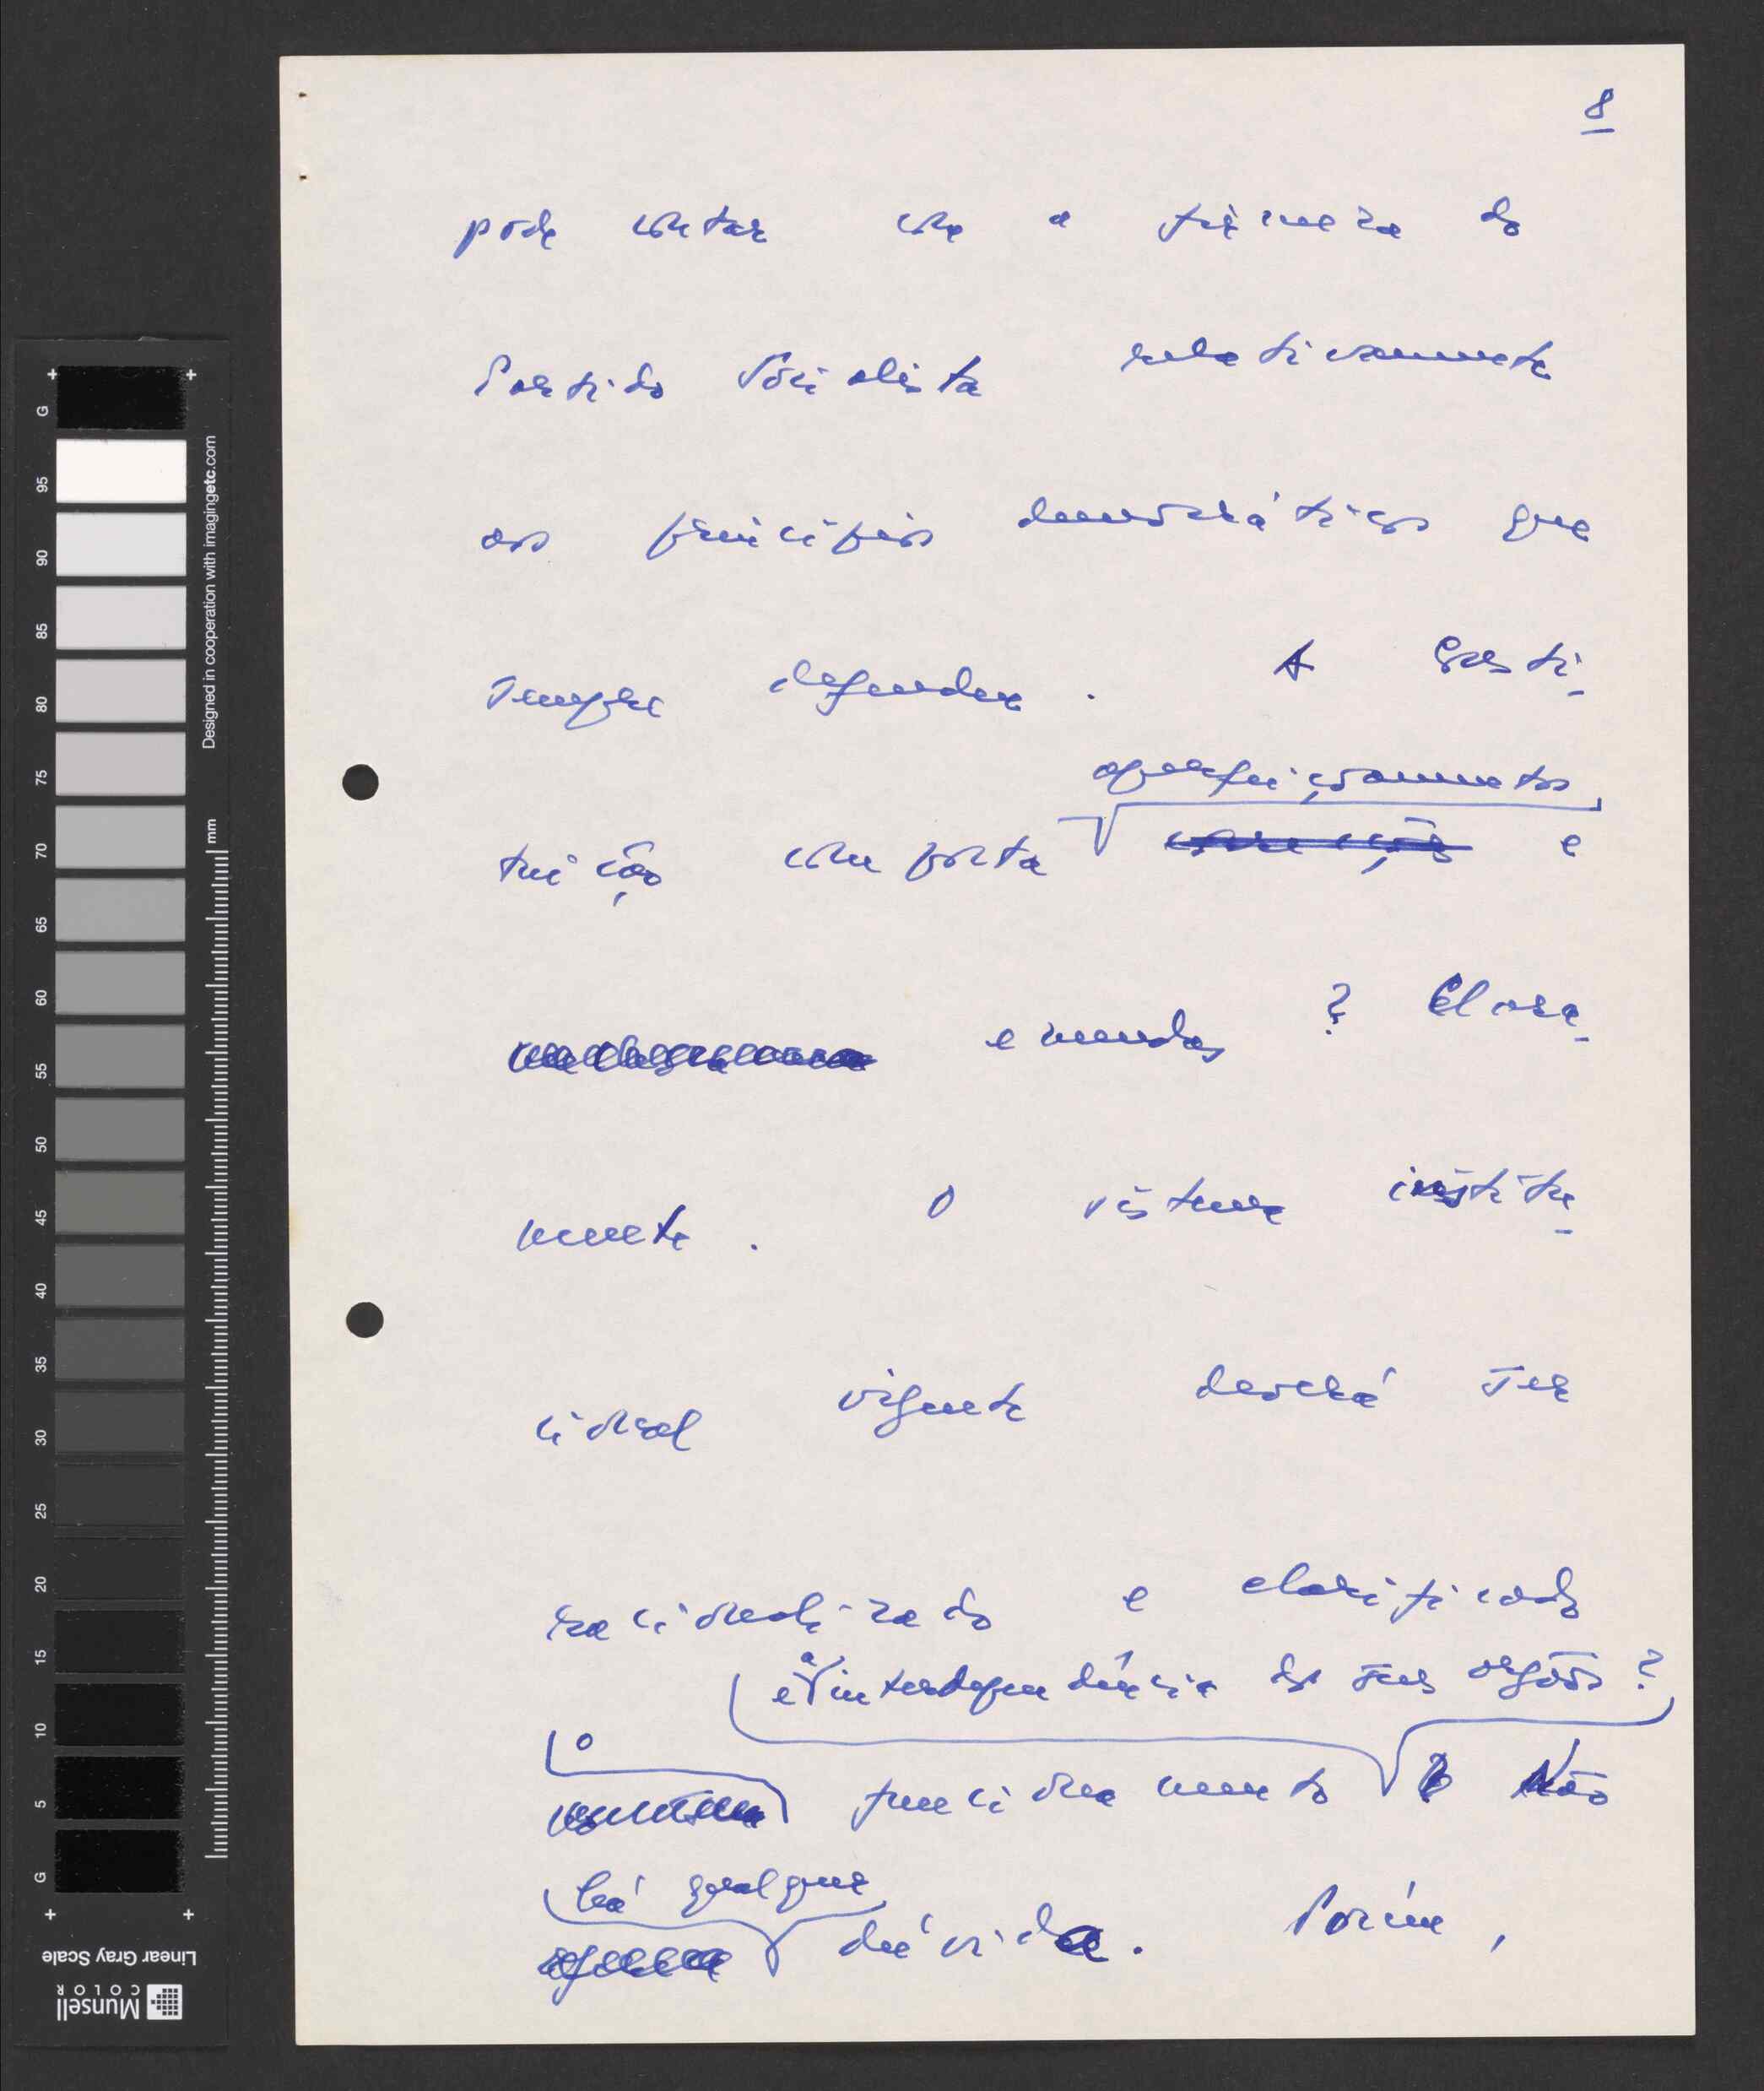 8
pode contar com a firmeza do
Partido Socialista relativamente
aos princípios democráticos que
sempre defendeu. A Consti-
aperfeiçoamentos
tuição comporta correcções e
emendas? Clara-
mente. O sistema institu-
cional vigente deverá ser
racionalizado e clarificado
e a interdependência dos seus orgãos?
o
funcionamento ? Não
há qualquer
dúvida. Porém,
G
95
90
85
80
75
70
65
60
55
50
45
40
35
30
25
20
15
10
5
G
Designed in cooperation with imagingetc.com
mm
Linear Gray Scale
Munsell
COLOR